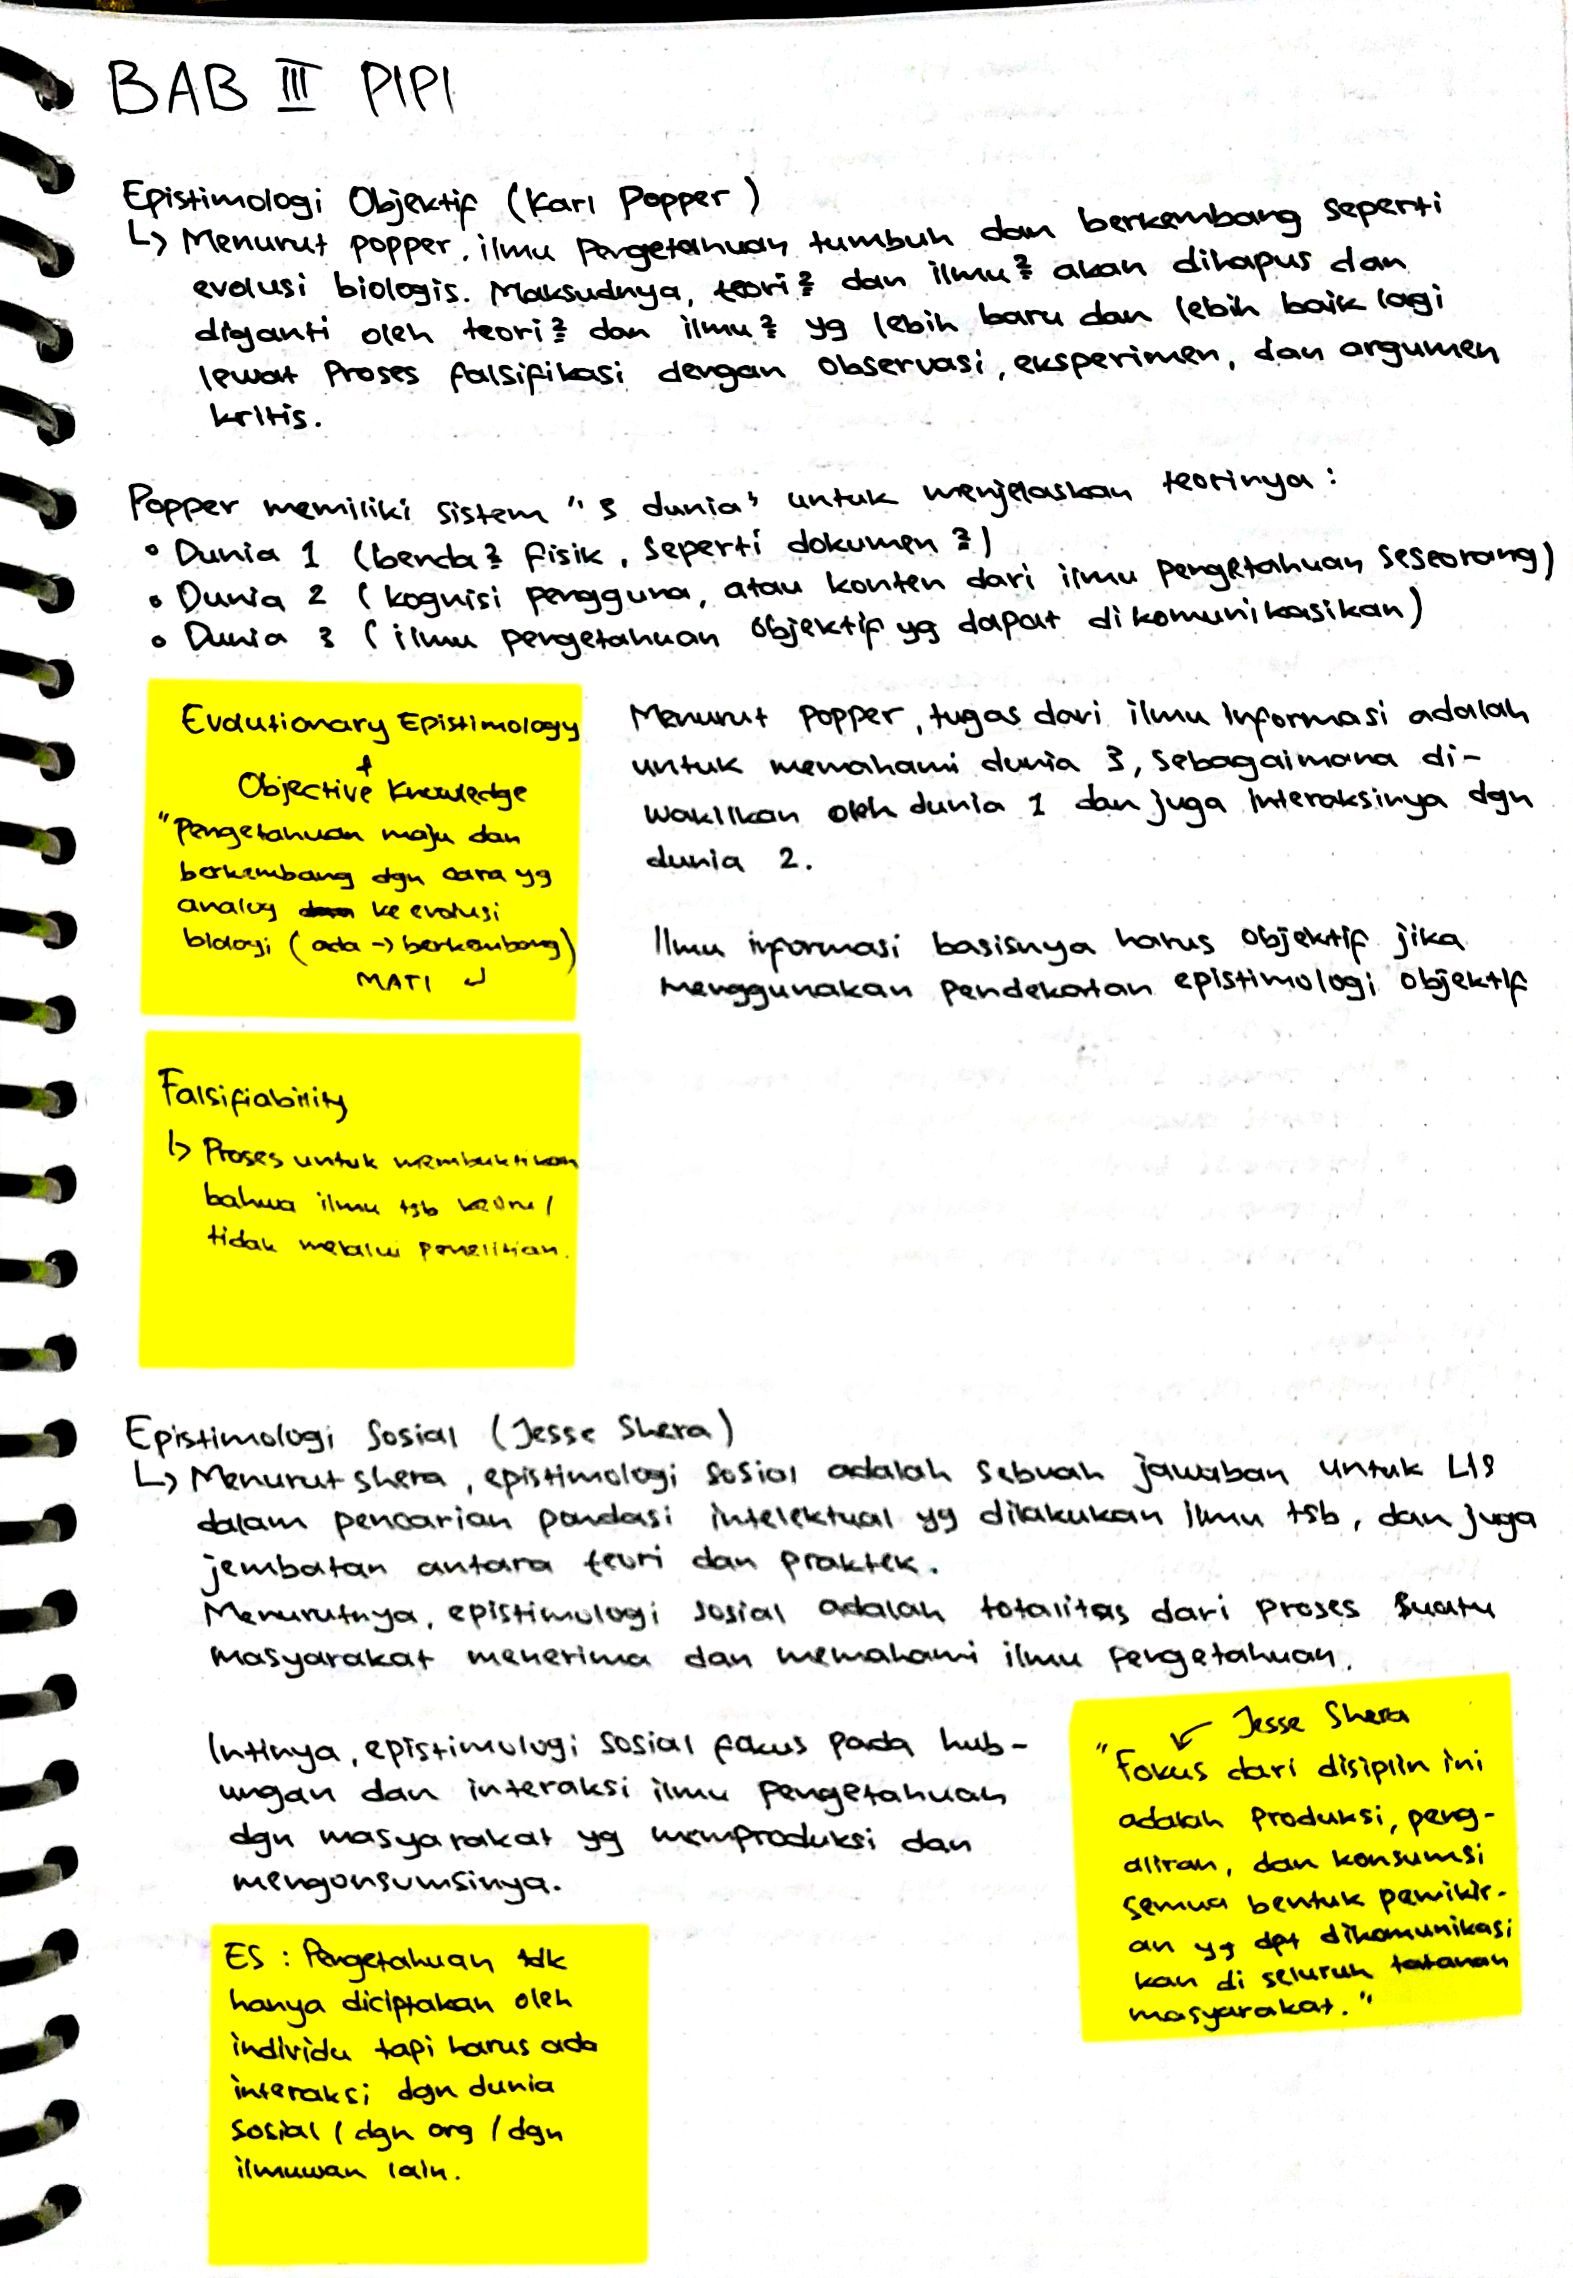 BAB III PIPI
Epistimologi Objektif (Karl Popper)
↳ Menurut popper, ilmu Pengetahuan tumbuh dan berkembang seperti
evolusi biologis. Maksudnya, teori2 dan ilmu2 akan dihapus dan
diganti oleh teori2 dan ilmu2 yg lebih baru dan lebih baik lagi
lewat Proses falsifikasi dengan observasi, eksperimen, dan argumen
kritis.
Popper memiliki sistem "3 dunia" untuk menjelaskan teorinya :
• Dunia 1 (benda2 fisik, seperti dokumen2)
• Dunia 2 (kognisi pengguna, atau konten dari ilmu pengetahuan seseorang)
• Dunia 3 (ilmu pengetahuan objektif yg dapat dikomunikasikan)
Evolutionary Epistimology
+
Objective Knowledge
"Pengetahuan maju dan
berkembang dgn cara yg
analog ke evolusi
biologi (ada → berkembang)
MATI ↲
Menurut popper, tugas dari ilmu informasi adalah
untuk memahami dunia 3, sebagaimana di-
wakilkan oleh dunia 1 dan juga interaksinya dgn
dunia 2.
Ilmu informasi basisnya harus objektif jika
menggunakan pendekatan epistimologi objektif
Falsifiability
↳ Proses untuk membuktikan
bahwa ilmu tsb /
tidak melalui penelitian.
Epistimologi Sosial (Jesse Shera)
↳ Menurut shera, epistimologi sosial adalah sebuah jawaban untuk LIS
dalam pencarian pondasi intelektual yg dilakukan ilmu tsb, dan juga
jembatan antara teori dan praktek.
Menurutnya, epistimologi sosial adalah totalitas dari proses suatu
masyarakat menerima dan memahami ilmu pengetahuan.
Intinya, epistimologi sosial fokus pada hub-
ungan dan interaksi ilmu pengetahuan
dgn masyarakat yg memproduksi dan
mengonsumsinya.
↙ Jesse Shera
"Fokus dari disiplin ini
adalah Produksi, peng-
aliran, dan konsumsi
semua bentuk pemikir-
an yg dpt dikomunikasi
kan di seluruh tatanan
masyarakat."
ES : Pengetahuan tdk
hanya diciptakan oleh
individu tapi harus ada
interaksi dgn dunia
sosial / dgn org / dgn
ilmuwan lain.